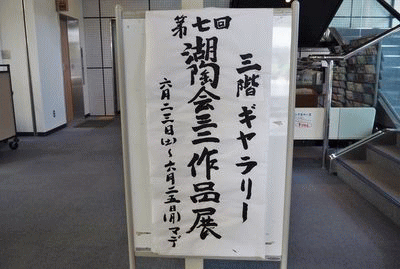 三階ギャラリー
第七回
湖陶会ミニ作品展
六月二三日(土)～六月二五日(月)マデ